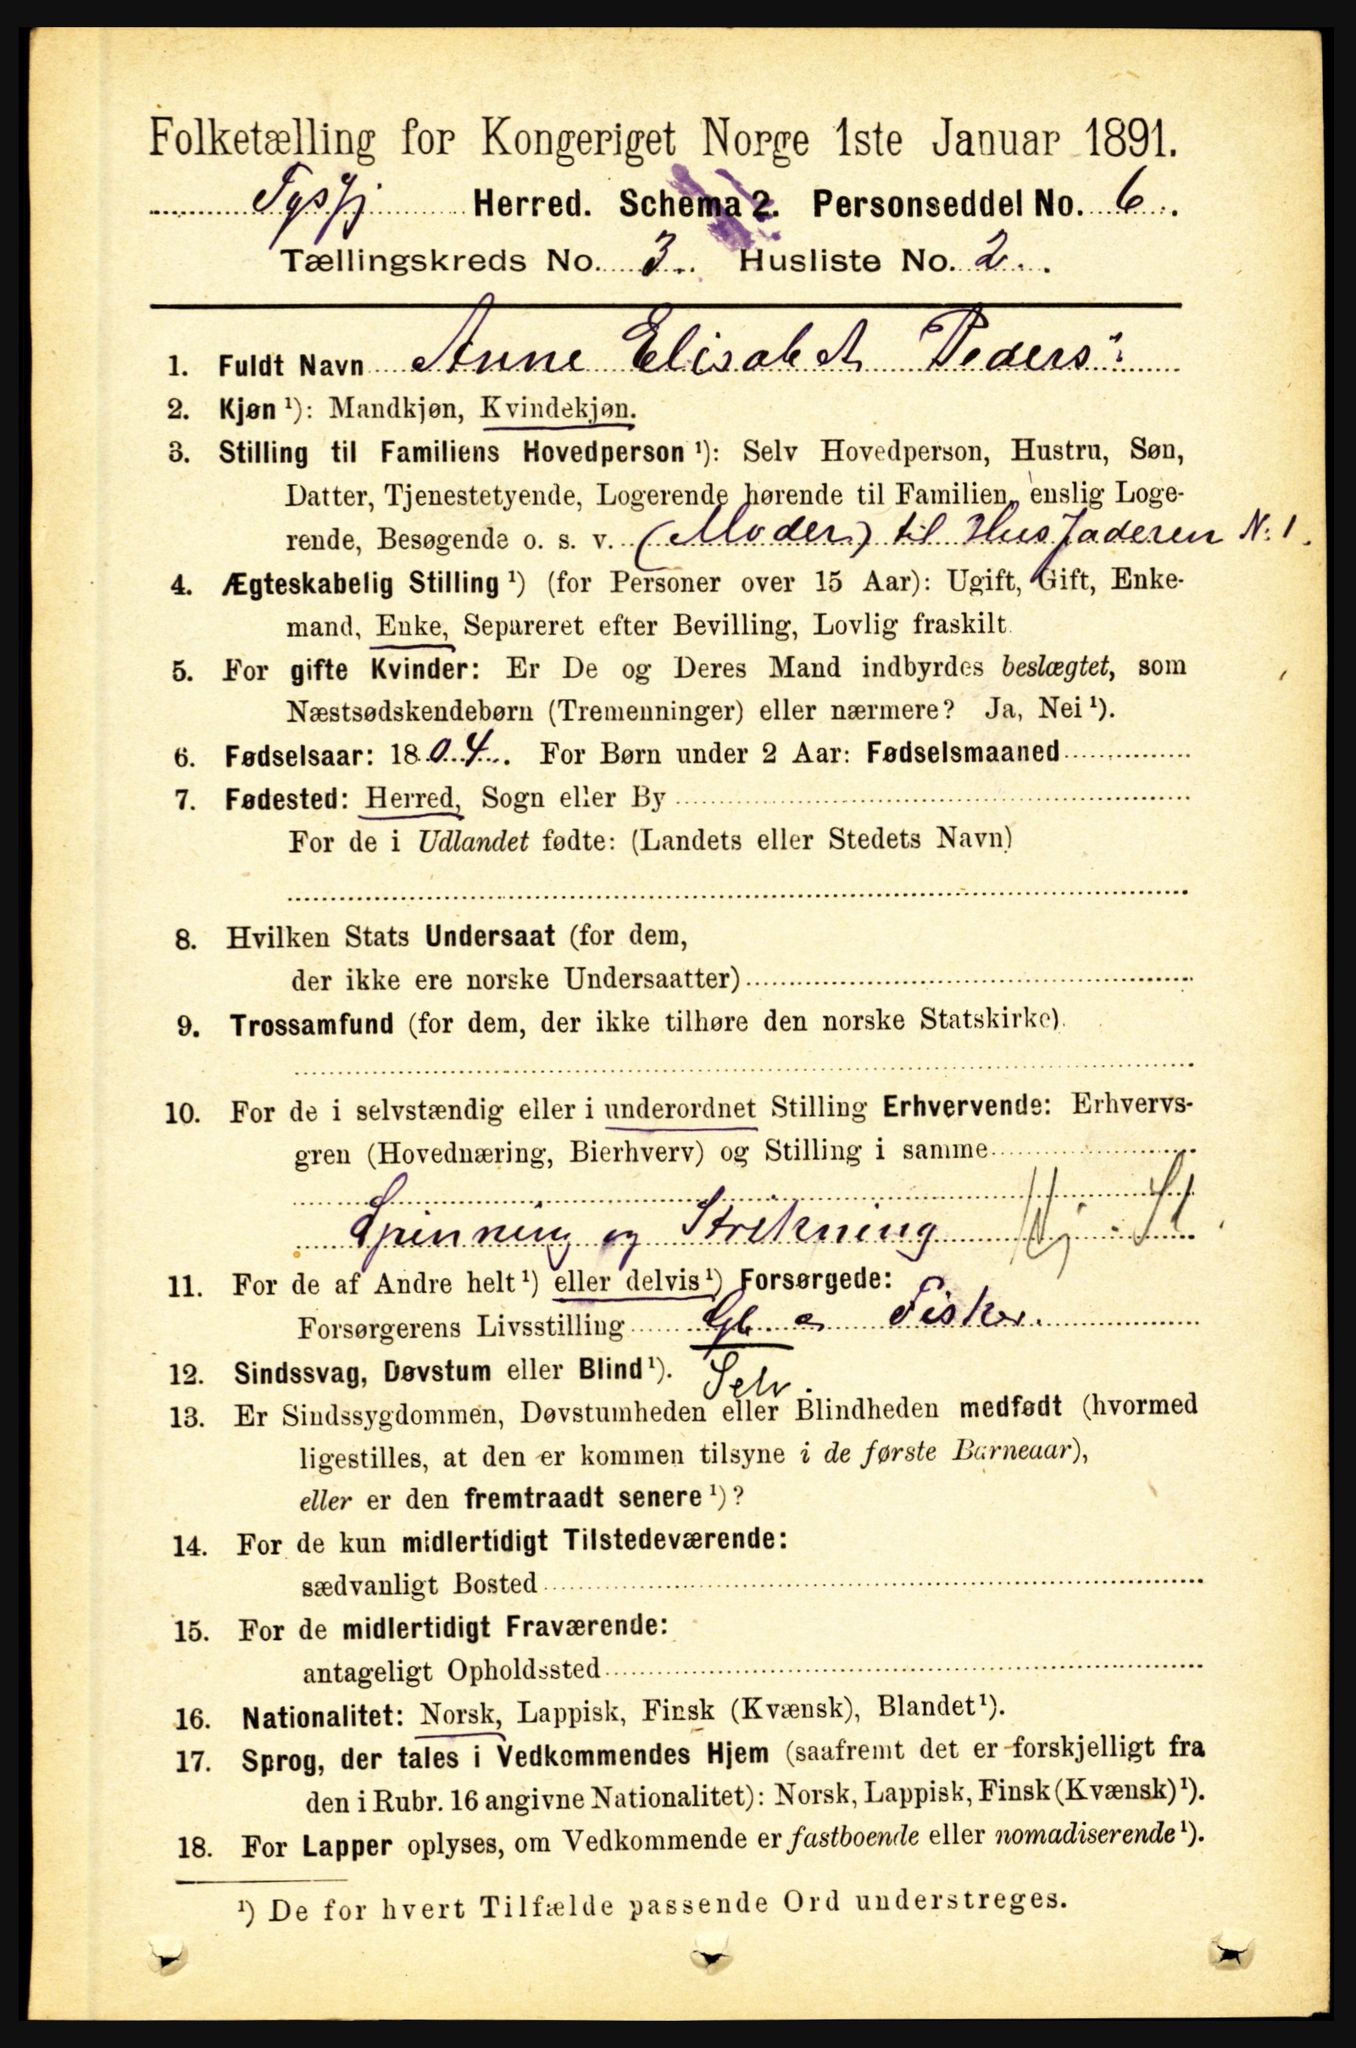 Folketælling for Kongeriget Norge 1ste Januar 1891.
Tysfj Herred. Schema 2. Personseddel No. 6.
Tællingskreds No. 3. Husliste No. 2.
1. Fuldt Navn Anne Elisabet Peders:
2. Kjøn ¹): Mandkjøn, Kvindekjøn.
3. Stilling til Familiens Hovedperson ¹): Selv Hovedperson, Hustru, Søn,
Datter, Tjenestetyende, Logerende hørende til Familien, enslig Loge-
rende, Besøgende o. s. v. (Moder) til Husfaderen N: 1.
4. Ægteskabelig Stilling ¹) (for Personer over 15 Aar): Ugift, Gift, Enke-
mand, Enke, Separeret efter Bevilling, Lovlig fraskilt
5. For gifte Kvinder: Er De og Deres Mand indbyrdes beslægtet, som
Næstsødskendebørn (Tremenninger) eller nærmere? Ja, Nei ¹).
6. Fødselsaar: 1804. For Børn under 2 Aar: Fødselsmaaned
7. Fødested: Herred, Sogn eller By
For de i Udlandet fødte: (Landets eller Stedets Navn)
8. Hvilken Stats Undersaat (for dem,
der ikke ere norske Undersaatter)
9. Trossamfund (for dem, der ikke tilhøre den norske Statskirke)
10. For de i selvstændig eller i underordnet Stilling Erhvervende: Erhvervs-
gren (Hovednæring, Bierhverv) og Stilling i samme
Spinning og Strikning
11. For de af Andre helt ¹) eller delvis ¹) Forsørgede:
Forsørgerens Livsstilling Gb. Fisker.
12. Sindssvag, Døvstum eller Blind ¹). Selv.
13. Er Sindssygdommen, Døvstumheden eller Blindheden medfødt (hvormed
ligestilles, at den er kommen tilsyne i de første Barneaar),
eller er den fremtraadt senere ¹)?
14. For de kun midlertidigt Tilstedeværende:
sædvanligt Bosted
15. For de midlertidigt Fraværende:
antageligt Opholdssted
16. Nationalitet: Norsk, Lappisk, Finsk (Kvænsk), Blandet ¹).
17. Sprog, der tales i Vedkommendes Hjem (saafremt det er forskjelligt fra
den i Rubr. 16 angivne Nationalitet): Norsk, Lappisk, Finsk (Kvænsk) ¹).
18. For Lapper oplyses, om Vedkommende er fastboende eller nomadiserende ¹).
¹) De for hvert Tilfælde passende Ord understreges.